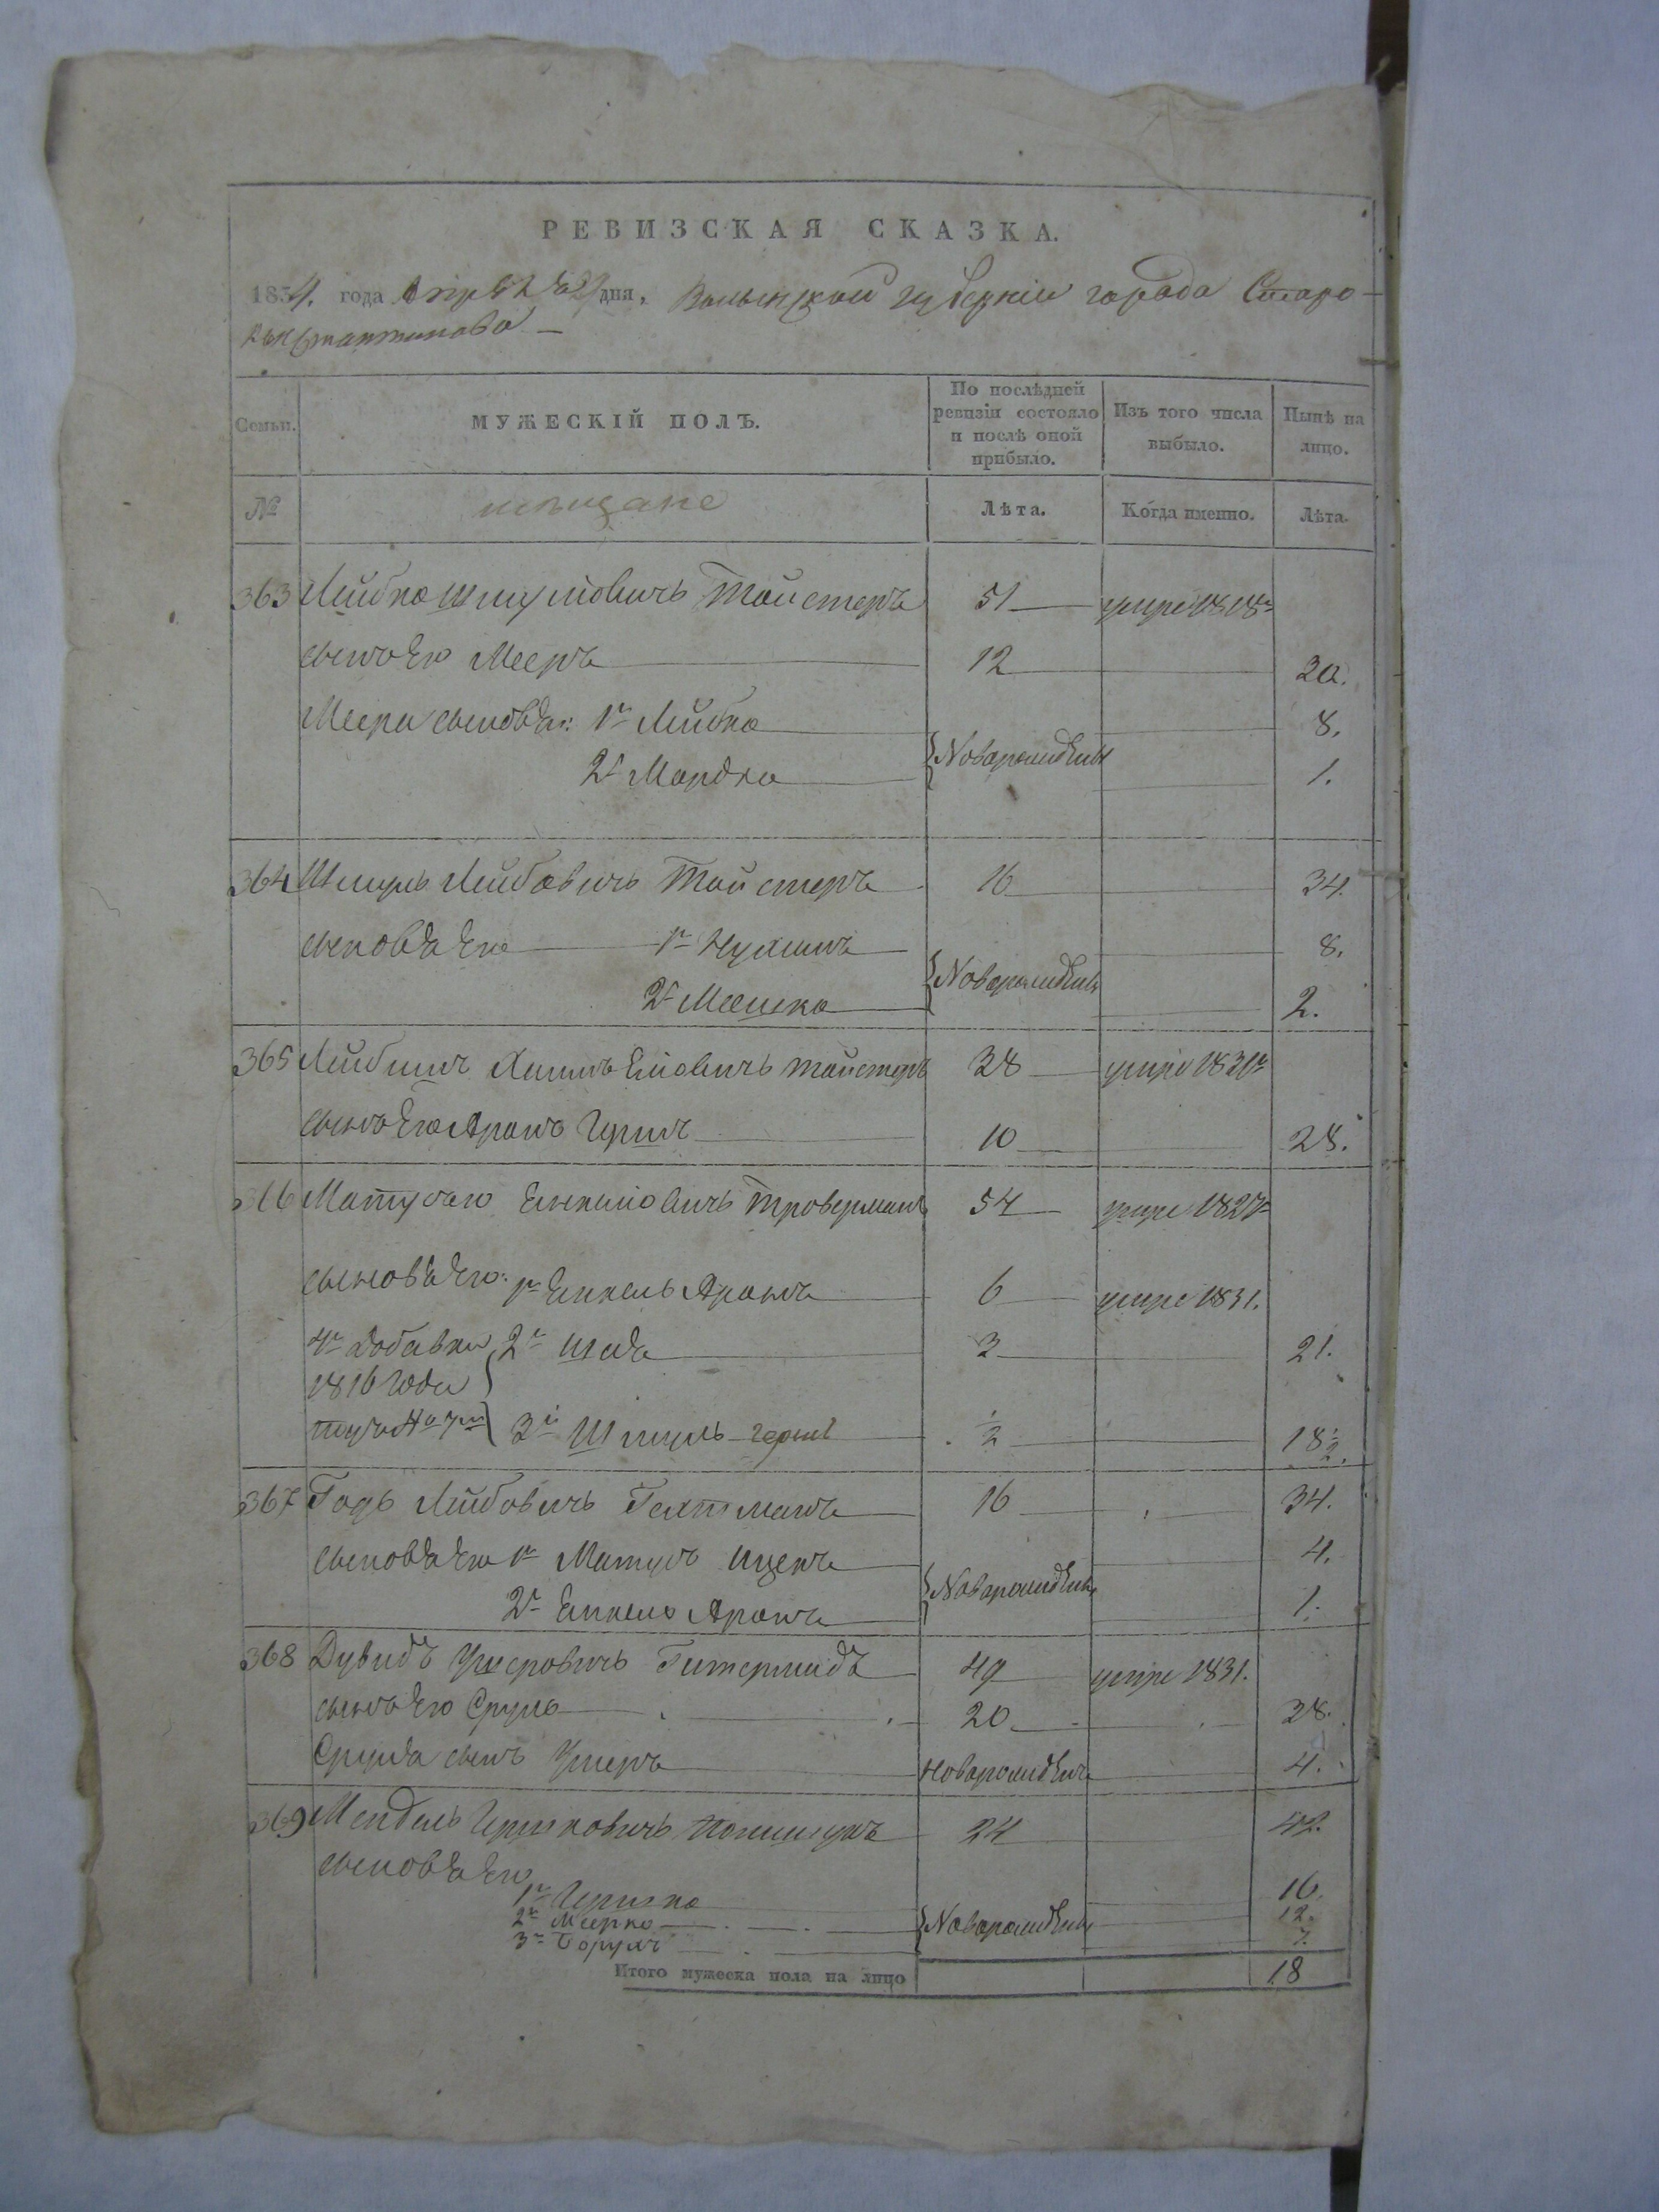 РЕВИЗСКАЯ СКАЗКА.
1834. года Апреля 22 дня, Волынской губернии города Старо-
константинова
Семьи. МУЖЕСКІЙ ПОЛЪ. По послѣдней ревизіи состояло и послѣ оной прибыло. Изъ того числа выбыло. Нынѣ на лицо.
№ мѣщане Лѣта. Когда именно. Лѣта.
363 Лейбка Шмулiовичъ Тайстеръ 51 умре 1818г
сынъ Его Мееръ 12 30.
Меера сыновья: 1й Лейбка 8.
Новорожденны
2й Мордко 1.
364 Шмуль Лейбовичъ Тайстеръ 16 34.
сыновья Его 1й Нухимъ 8.
Новорожденны
2й Мошко 2.
365 Лейбишъ Хаимъ Елiовичъ Тайстеръ 38 умре 1831г
сынъ Его Аронъ Гершъ 10 28.
366 Матусъ Янкелiовичъ Троверманъ 54 умре 1827г
сыновья Его: 1й Янкель Аронъ 6 умре 1831.
4й добавки 2й Шая 3 21.
1816 года
подъ № 7м 3й Шмуль Гершъ ½ 18½.
367 Годь Лейбовичъ Гехтманъ 16 34.
сыновья Его 1й Матусъ Ицекъ 4.
Новорожденны
2й Янкель Аронъ 1.
368 Дувидъ Ушеровичъ Гитермидъ 49 умре 1831.
сынъ Его Сруль 20 38.
Сруля сынъ Ушеръ Новорожденъ 4.
369 Мендель Гершковичъ 24 42.
сыновья Его
1й Гершко 16.
2й Меерко Новорожденны 12.
3й Борухъ 7.
Итого мужеска пола на лицо 18